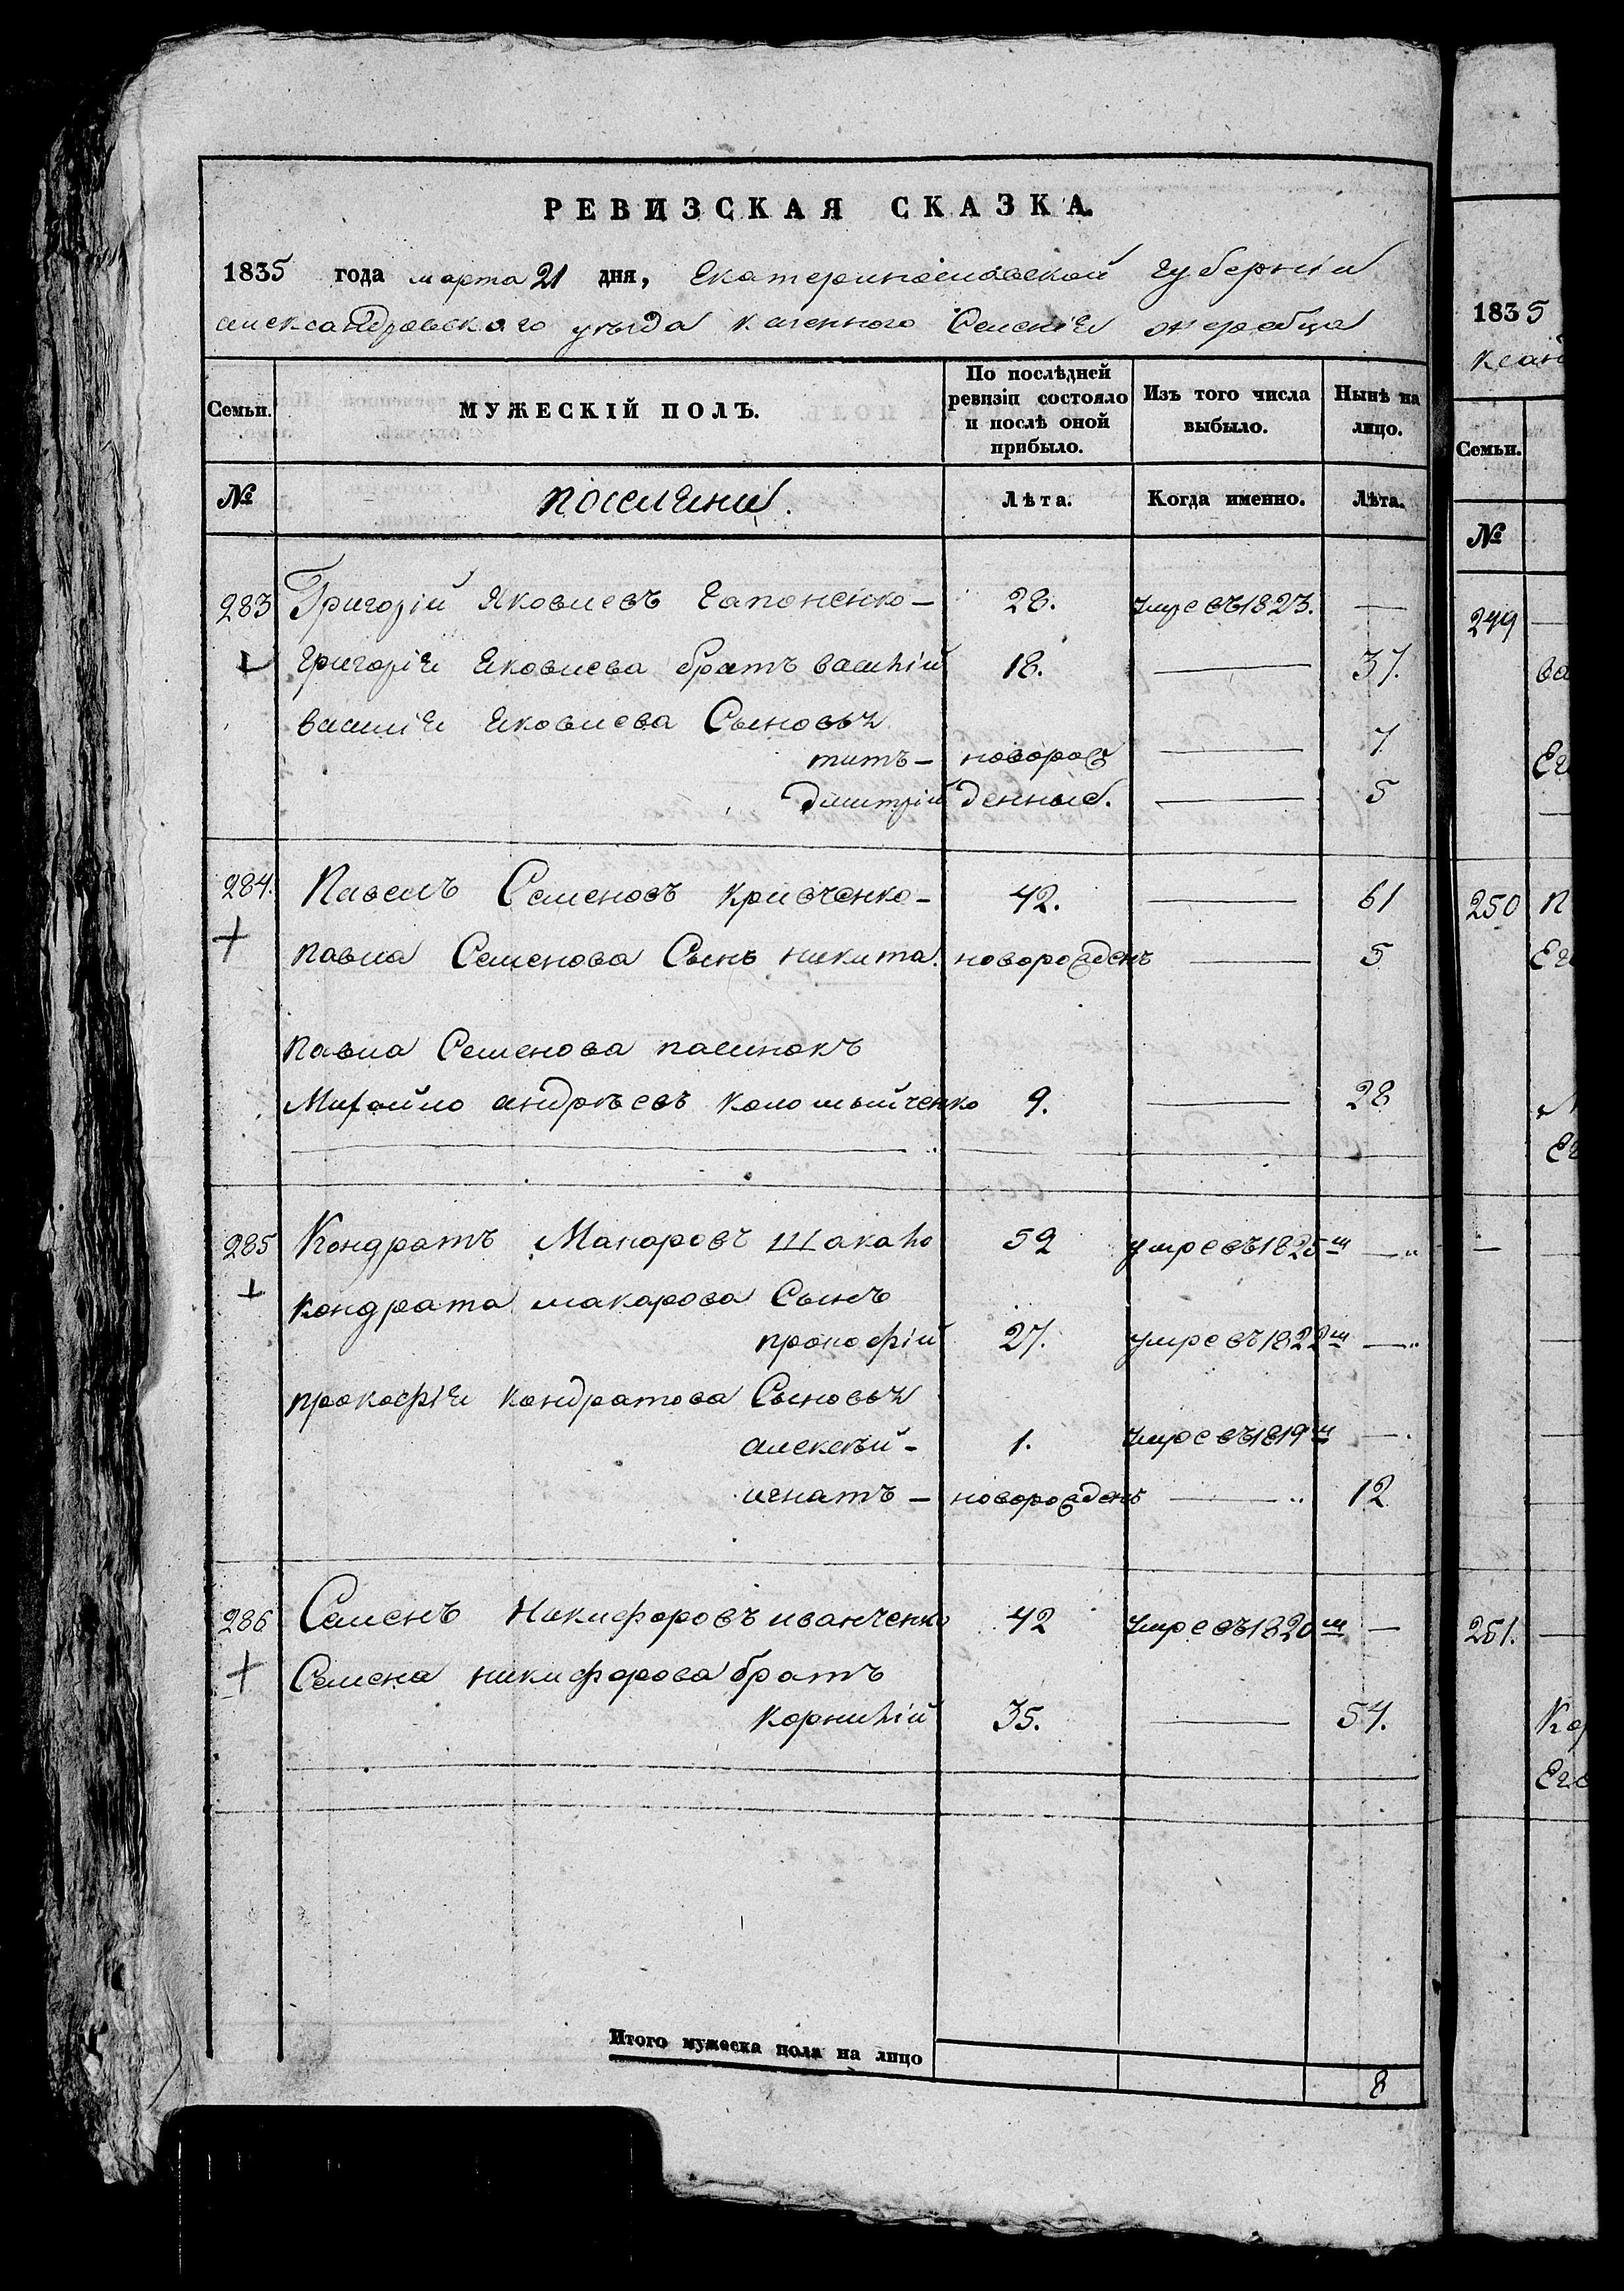 РЕВИЗСКАЯ СКАЗКА.
1835 года марта 21 дня, Екатеринославской губерніи
александровского уѣзда казенного Селенія жеребца
Семьи. МУЖЕСКІЙ ПОЛЪ. По послѣдней ревизіи состояло и послѣ оной прибыло. Изъ того числа выбыло. Нынѣ на лицо.
№ поселяни. Лѣта. Когда именно. Лѣта.
283 Григорій Яковлевъ Гапоненко — 28. умре въ 1823. —
Григорія Яковлева братъ василій 18. — 37.
василія Яковлева Сыновья
титъ — новорож — 7
дмитрій денные. — 5
284. Павелъ Семеновъ кривченко — 42. — 61
+ павла Семенова Сынъ никита. новорожденъ — 5
павла Семенова пасинокъ
Михайло андрѣевъ коломыйченко 9. — 28
285 Кондратъ Макаровъ Шакало 59 умре въ 1825м —
+ кондрата макарова Сынъ
прокофій 27. умре въ 1822м —
прокофія кондратова Сыновья
алексѣй — 1. умре въ 1819м —
игнатъ — новорожденъ — 12
286 Семенъ Никифоровъ иванченко 42 умре въ 1820м —
+ Семена никифорова братъ
корнилій 35. — 54.
Итого мужеска пола на лицо 8
1835
ксан
Семьи.
№
249
ва
Ег
250 П
Ег
Ег
251.
Кор
Его